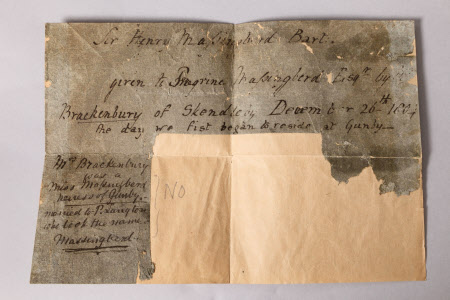 Sir Henry Massingberd Bart.
given to Peregrine Massingberd Esqr. by
Brackenbury of Skendleby Decemb r 26th
the day we fist began to reside at Gunby
Mrs Brackenbury
was a
Miss Massingberd
heiress of Gunby.
married to P. Langton
who took the name
Massingberd.
NO